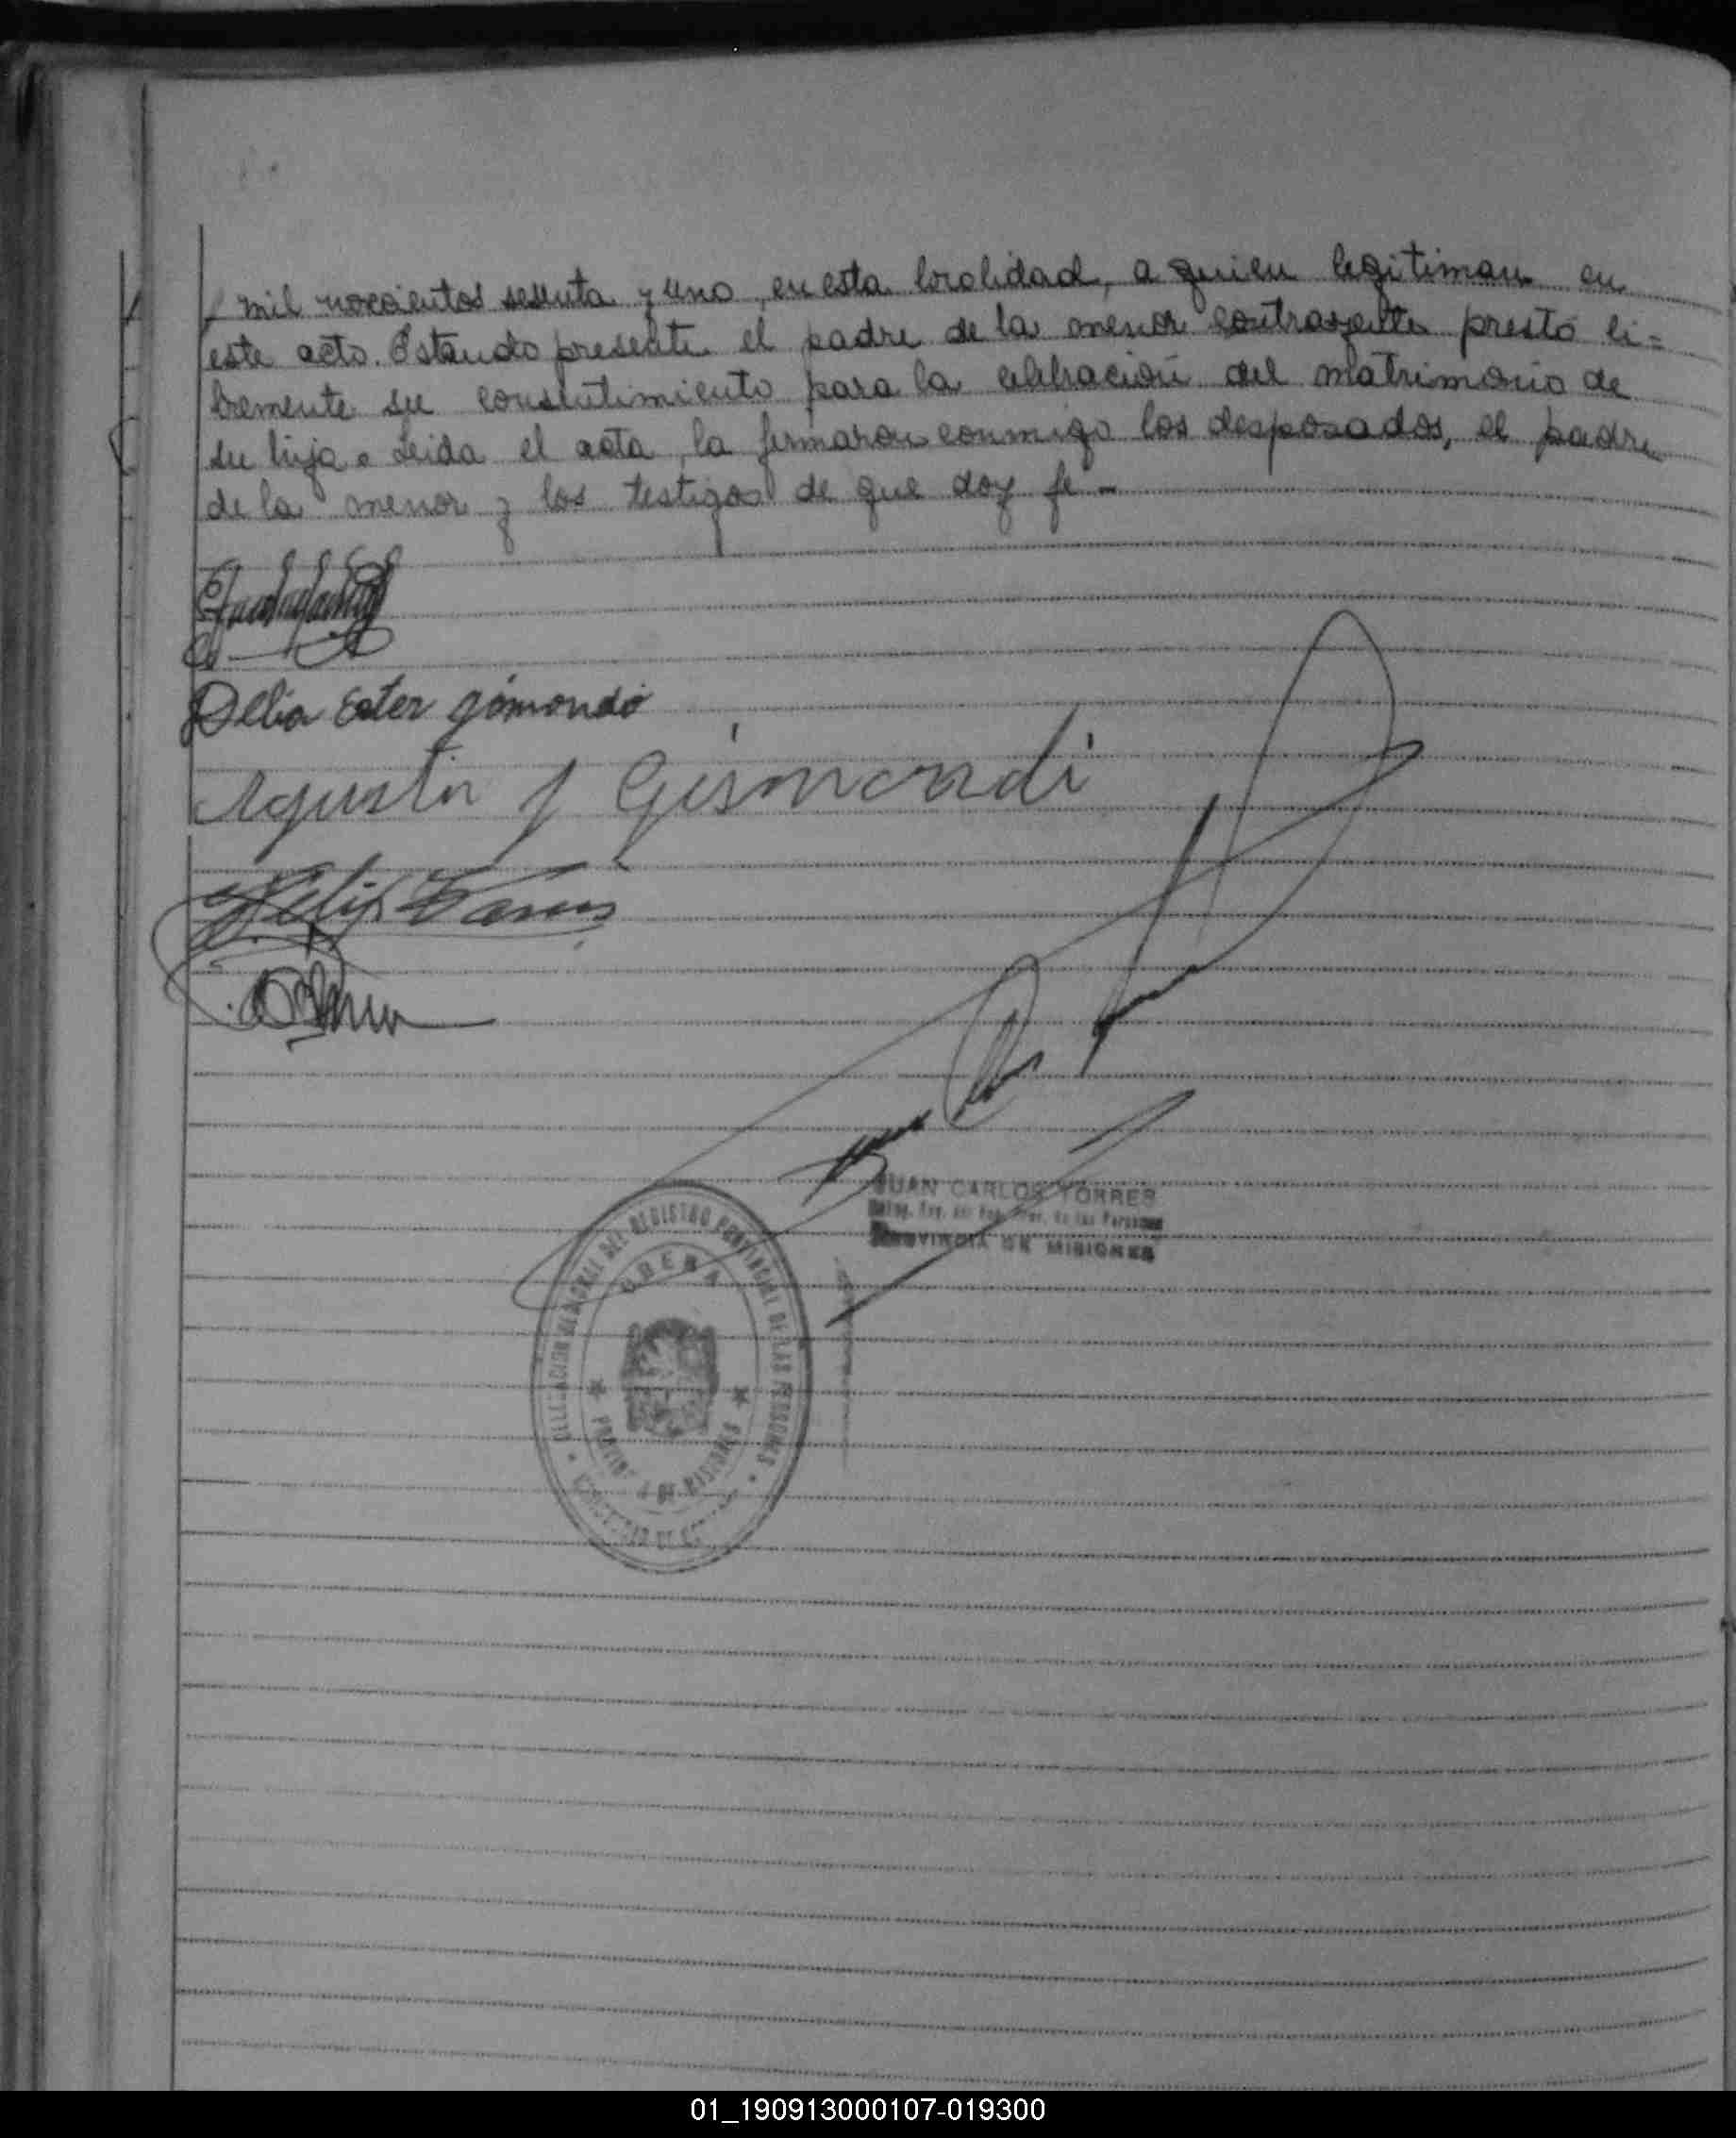 mil novecientos sesenta y uno, en esta localidad, a quien legitiman en
este acto. Estando presente el padre de la menor contrayente prestó li=
bremente su consentimiento para la celebración del matrimonio de
su hija. Leida el acta, la firmaron conmigo los desposados, el padre
de la menor y los testigos de que doy fe -
Delia Ester gismondi
Agustin J Gismondi
JUAN CARLOS TORRES
PROVINCIA DE MISIONES
DELEGACION REGIONAL DEL REGISTRO PROVINCIAL DE LAS PERSONAS
OBERA
PROVINCIA DE MISIONES
01_190913000107-019300